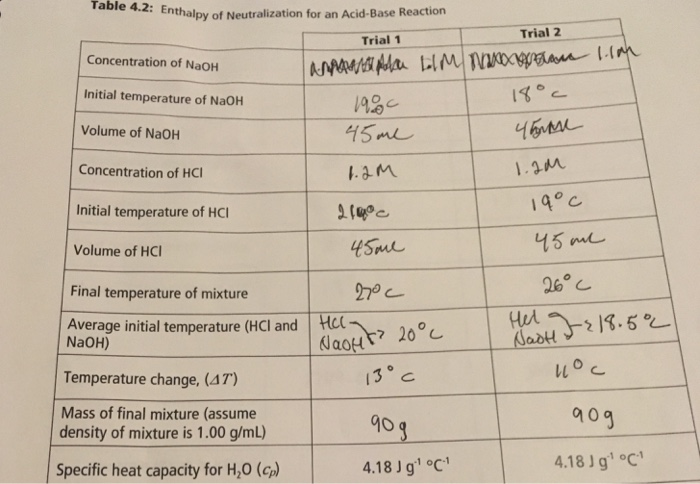 Table 4.2: Enthalpy of Neutralization for an Acid-Base Reaction
Trial 1 Trial 2
Concentration of NaOH 1.1M 1.1M
Initial temperature of NaOH 19°C 18°C
Volume of NaOH 45mL 45mL
Concentration of HCl 1.2M 1.2M
Initial temperature of HCl °C 19°C
Volume of HCl 45mL 45mL
Final temperature of mixture 27°C 26°C
Average initial temperature (HCl and HCl 20°C HCl 18.5°C
NaOH) NaOH NaOH
Temperature change, (ΔT) 13°C °C
Mass of final mixture (assume
density of mixture is 1.00 g/mL) 90g 90g
Specific heat capacity for H₂O (cp) 4.18 J g⁻¹ °C⁻¹ 4.18 J g⁻¹ °C⁻¹